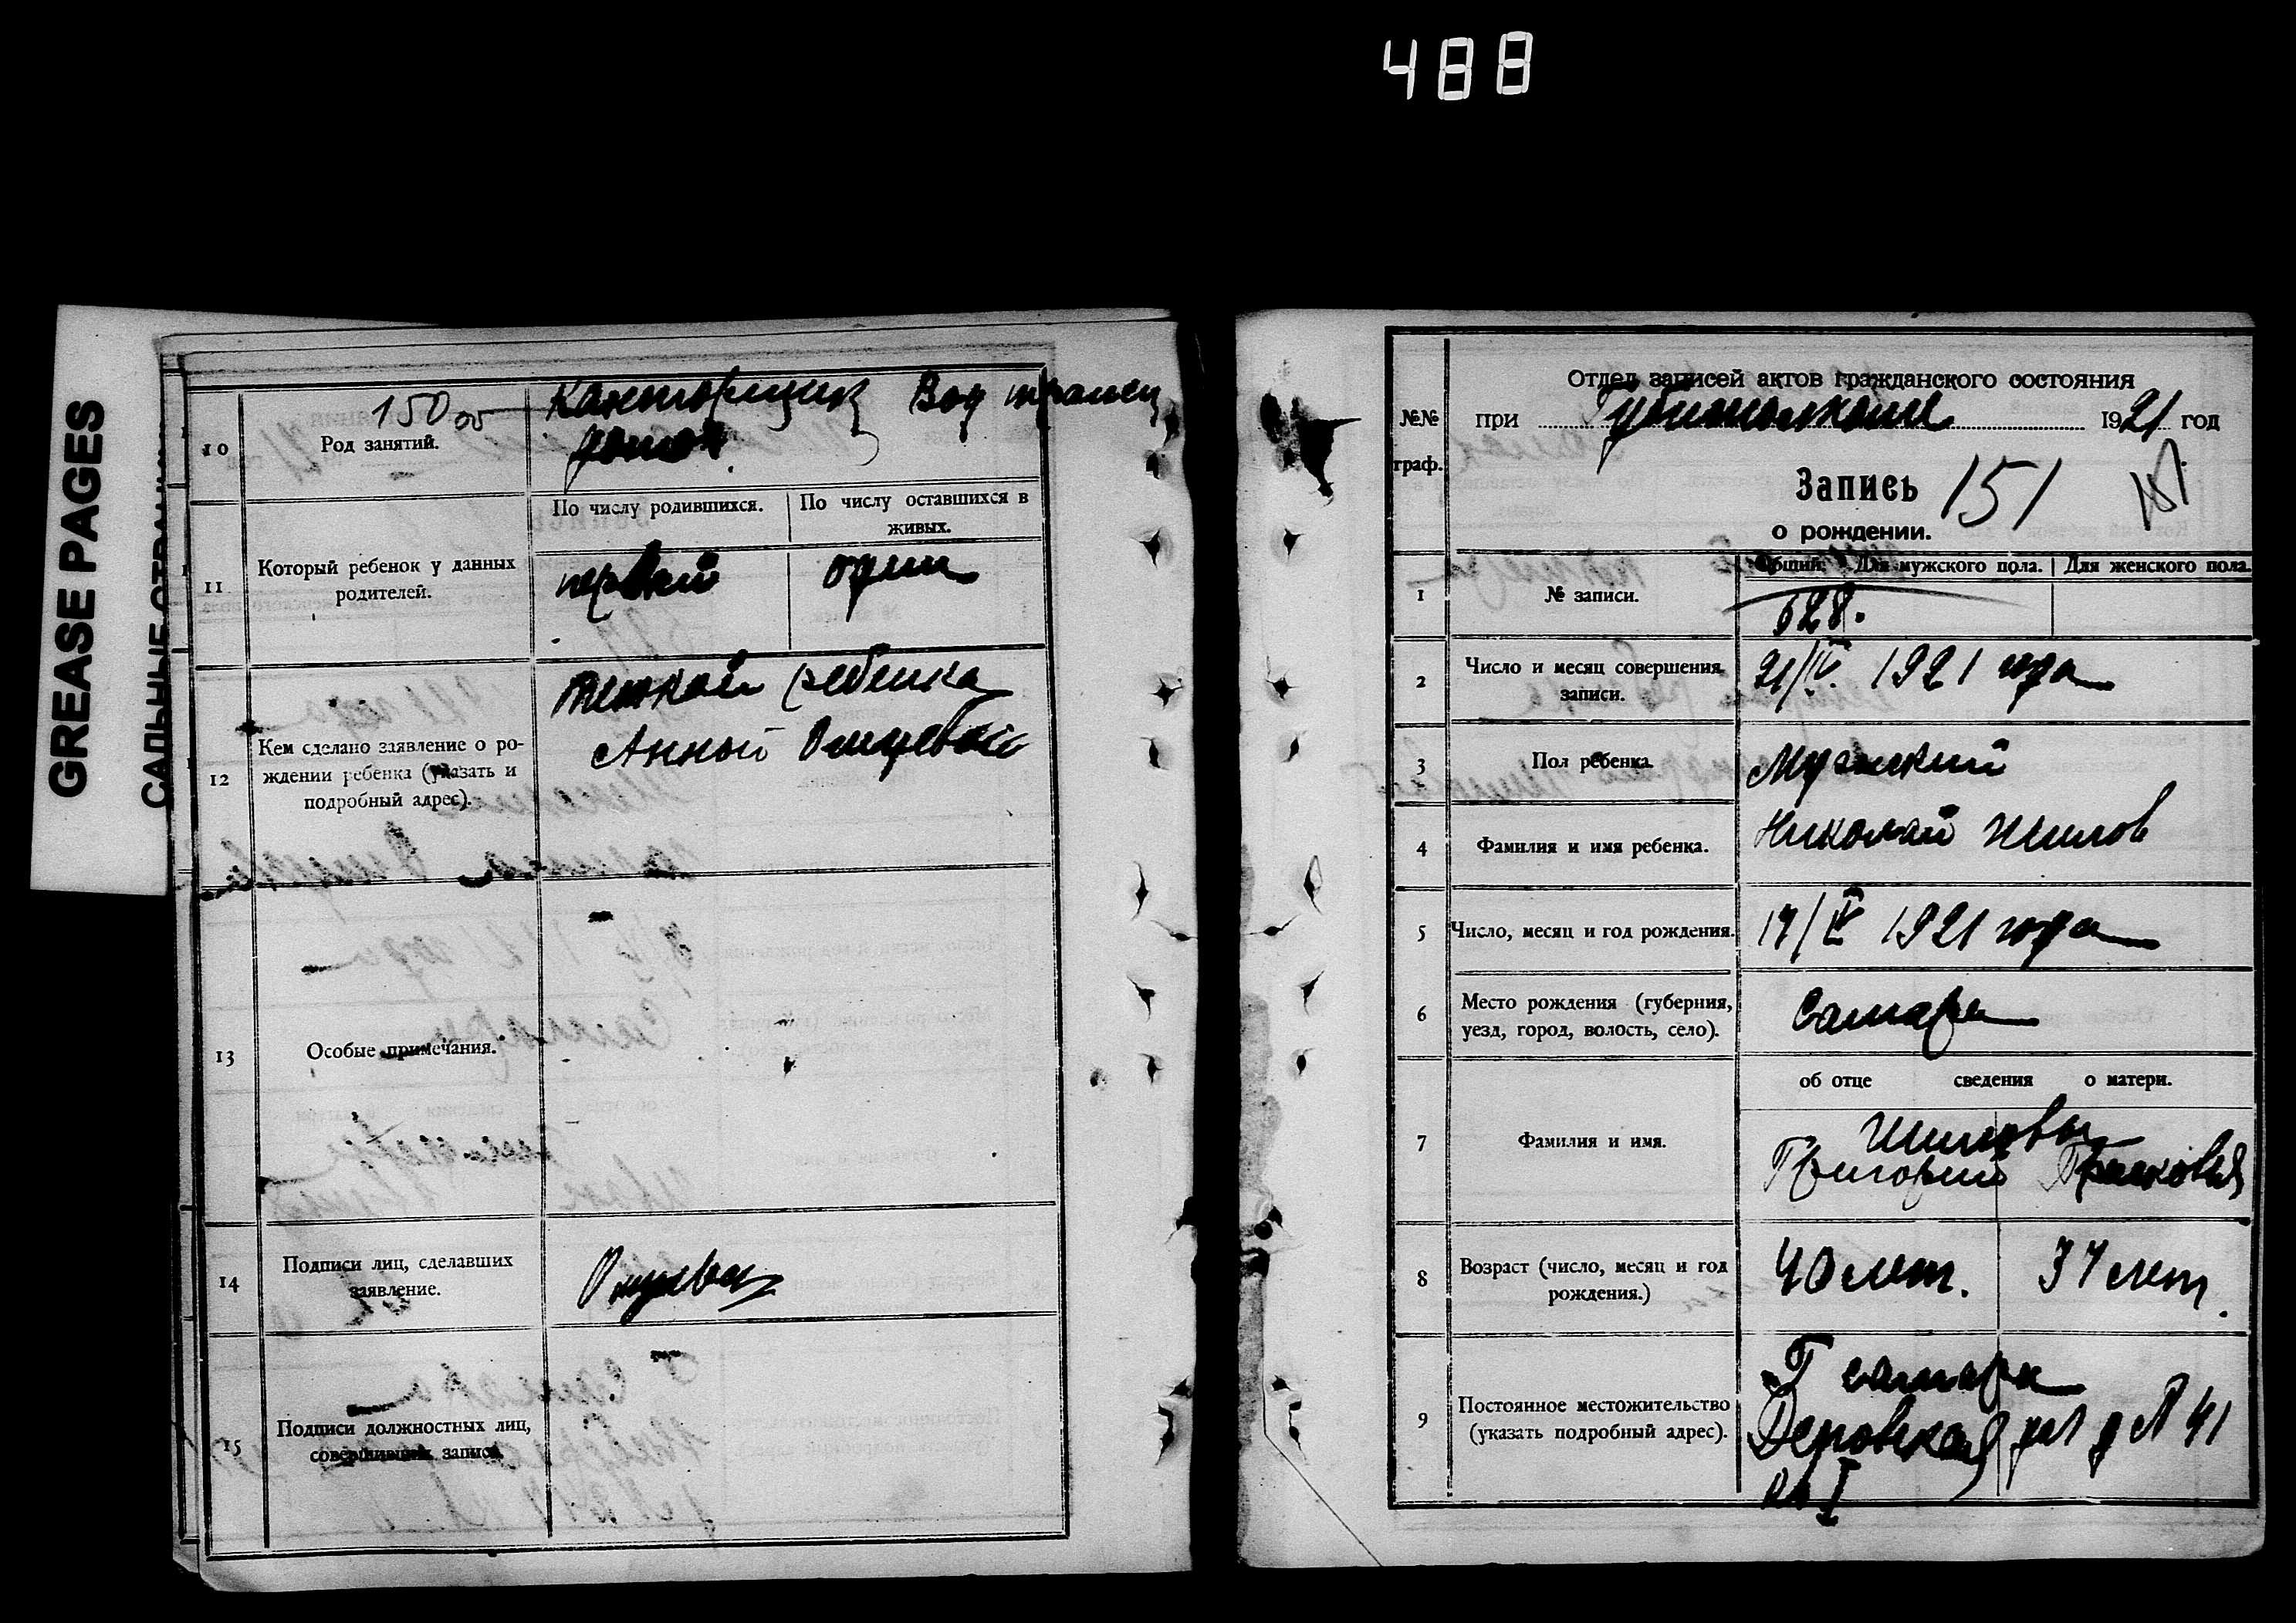 488
GREASE PAGES
САЛЬНЫЕ СТРАНИЦЫ
10
Род занятий.
150 00
Канторщик Вод
11
Который ребенок у данных
родителей.
По числу родившихся.
По числу оставшихся в
живых.
первый
один
12
Кем сделано заявление о ро-
ждении ребенка (указать и
подробный адрес).
теткой ребенка
Анной
13
Особые примечания.
14
Подписи лиц, сделавших
заявление.
15
Подписи должностных лиц,
совершивших запись.
№№
граф.
Отдел записей актов гражданского состояния
при Губисполкоме 1921 год
Запись 151
о рождении.
1
№ записи.
Общий. Для мужского пола. Для женского пола.
528.
2
Число и месяц совершения
записи.
21/IV. 1921 года
3
Пол ребенка.
Мужской
4
Фамилия и имя ребенка.
Николай Шилов
5
Число, месяц и год рождения.
17/IV 1921 года
6
Место рождения (губерния,
уезд, город, волость, село).
Самара
об отце сведения о матери.
7
Фамилия и имя.
Шиловы
Григорий Прасковья
8
Возраст (число, месяц и год
рождения.)
40 лет. 37 лет.
9
Постоянное местожительство
(указать подробный адрес).
Г Самара
41